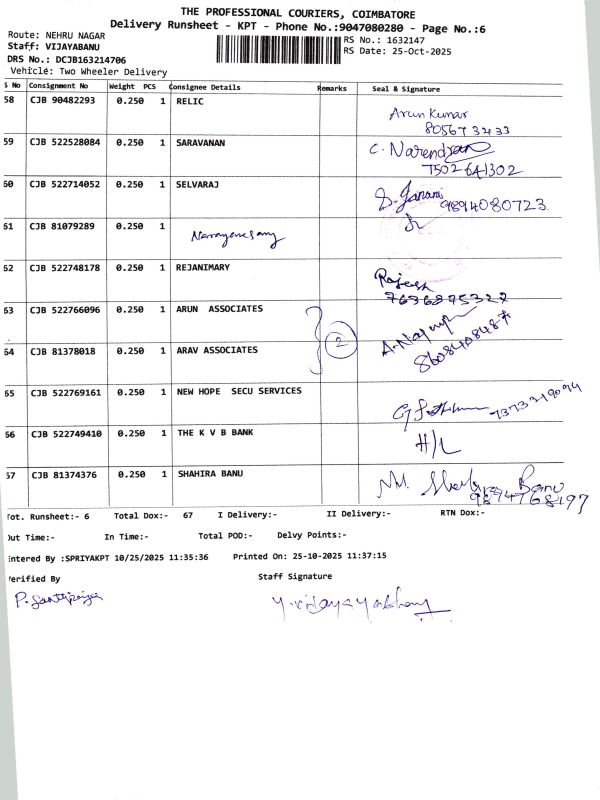 THE PROFESSIONAL COURIERS, COIMBATORE
Delivery Runsheet - KPT - Phone No.:9047080280 - Page No.:6
Route: NEHRU NAGAR
Staff: VIJAYABANU
DRS No.: DCJB163214706
Vehicle: Two Wheeler Delivery
RS No.: 1632147
RS Date: 25-Oct-2025
S No Consignment No Weight PCS Consignee Details Remarks Seal & Signature
58 CJB 90482293 0.250 1 RELIC
Arun Kumar
805673433
59 CJB 522528084 0.250 1 SARAVANAN C. Narendran
7502641302
60 CJB 522714052 0.250 1 SELVARAJ S. Janani 9894080723
61 CJB 81079289 0.250 1
62 CJB 522748178 0.250 1 REJANIMARY
Rajesh
63 CJB 522766096 0.250 1 ARUN ASSOCIATES
2
64 CJB 81378018 0.250 1 ARAV ASSOCIATES
65 CJB 522769161 0.250 1 NEW HOPE SECU SERVICES
7373319094
66 CJB 522749410 0.250 1 THE K V B BANK H/L
67 CJB 81374376 0.250 1 SHAHIRA BANU
Banu
9894768197
Tot. Runsheet:- 6 Total Dox:- 67 I Delivery:- II Delivery:- RTN Dox:-
Out Time:- In Time:- Total POD:- Delvy Points:-
Entered By :SPRIYAKPT 10/25/2025 11:35:36 Printed On: 25-10-2025 11:37:15
Verified By Staff Signature